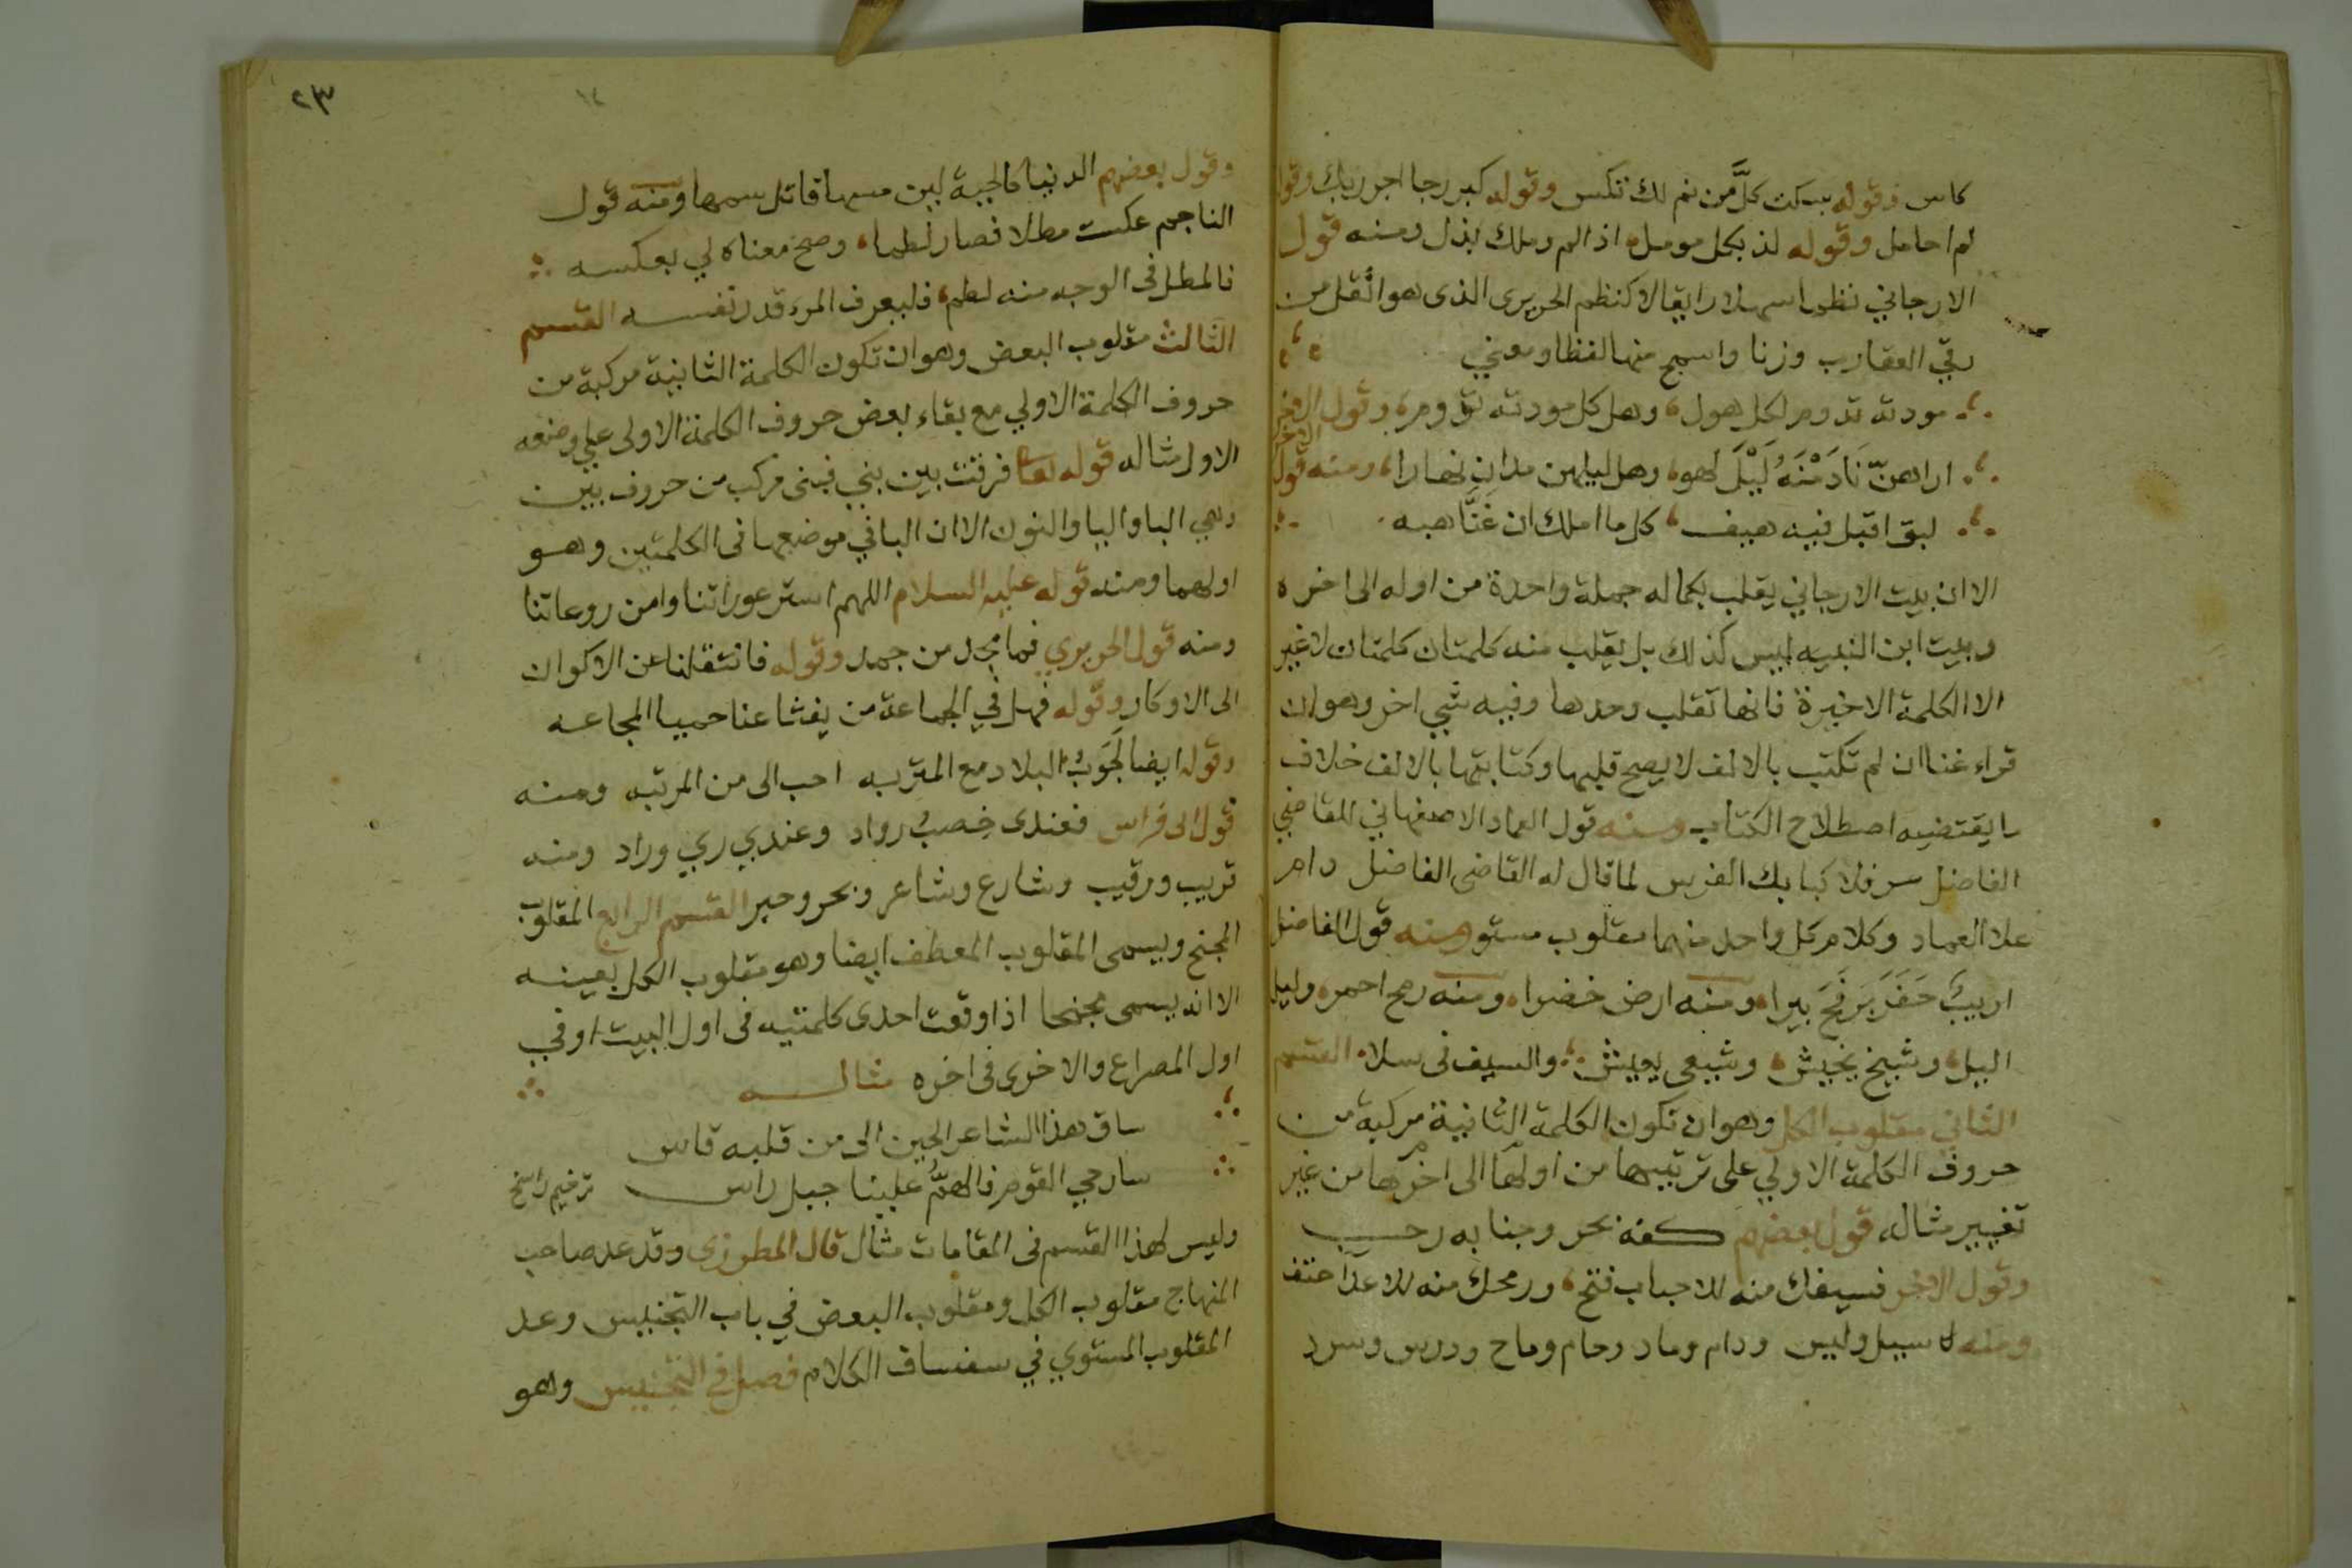 كاس وقوله سكت كلَّ من نم لك تكس وقوله كبر رجا اجر ربك وقوله
لم احامل وقوله لذ بكل مومل اذا لم وملك بذل ومنه قول
الارجاني نظما سهلا رايقا لا كنظم الحريرى الذى هو اثقل من
رقي العقارب وزنا واسمج منها لفظا ومعني
مودته تدوم لكل هول وهل كل مودته تدوم وقول الاخر
اراهنّ نَادَمْنَهُ لَيْلَ لهو وهل ليلهن مدان نهارا ومنه قول الاخر
لبق اقبل فيه هيف كل ما املك ان غَنَّا هبه
الا ان بيت الارجاني يقلب بكماله جملة واحدة من اوله الى اخره
وبيت ابن النبيه ليس كذلك بل يقلب منه كلمتان كلمتان لا غير
الا الكلمة الاخيرة فانها تقلب وحدها وفيه شي اخر وهو ان
قراء غنا ان لم تكتب بالالف لا يصح قلبها وكتابتها بالالف خلاف
ما يقتضيه اصطلاح الكتاب ومنه قول العماد الاصفهاني للقاضي
الفاضل سر فلا كبا بك الفرس لما قال له القاضى الفاضل دام
علا العماد وكلام كل واحد منهما مقلوب مستو ومنه قول الفاضل
اريبٌ حَفَرَ بَرَفَحَ بيرا ومنه ارض خضرا ومنه رمح احمر وليل
اليل وشيخ يخيش وشيعى يعيش والسيف فى سلا القسم
الثاني مقلوب الكل وهو ان تكون الكلمة الثانية مركبة من
حروف الكلمة الاولي على ترتيبها من اولها الى اخرها من غير
تغيير مثاله قول بعضهم كفه بحر وجنابه رحب
وقول الاخر فسيفك منه للاحباب فتح ورمحك منه للاعدا حتف
ومنه لا سيل وليس ودام وماد وحام وماح ودرس وسرد
٢٣
وقول بعضهم الدنيا كالحية لين مسها قاتل سمها ومنه قول
الناجم عكست مطلا فصار لطما وصح معناه لي بعكسه
فالمطل فى الوجه منه لطم فليعرف المرء قدر نفسه القسم
الثالث مقلوب البعض وهو ان تكون الكلمة الثانية مركبة من
حروف الكلمة الاولي مع بقاء بعض حروف الكلمة الاولى علي وضعه
الاول مثاله قوله تعا فرقت بين بني فبنى مركب من حروف بين
وهي البا واليا والنون الا ان البا في موضعها فى الكلمتين وهو
اولهما ومنه قوله عليه السلام اللهم استر عوراتنا وامن روعاتنا
ومنه قول الحريري فما مجد من جمد وقوله فانتقلنا عن الاكوان
الى الاوكار وقوله فهل في الجماعة من يفثا عنا حميا المجاعه
وقوله ايضا لَجَوبُ البلاد مع المتربه احب الى من المرتبه ومنه
قول ابى فراس فعندى خِصبُ رواد وعندي ري وراد ومنه
قريب ورقيب وشارع وشاعر وبحر وحبر القسم الرابع المقلوب
المجنح ويسمى المقلوب المعطف ايضا وهو مقلوب الكل بعينه
الا انه يسمى مجنحا اذا وقعت احدى كلمتيه فى اول البيت او في
اول المصراع والاخرى فى اخره مثاله
ساق هذا الشاعر الحين الى من قلبه قاس
سار حي القوم فالهمُّ علينا جبل راس ترخيم راسخ
وليس لهذا القسم فى المقامات مثال قال المطرزى وقد عد صاحب
المنهاج مقلوب الكل ومقلوب البعض في باب التجنيس وعد
المقلوب المستوي في سفساف الكلام فصل في التجنيس وهو